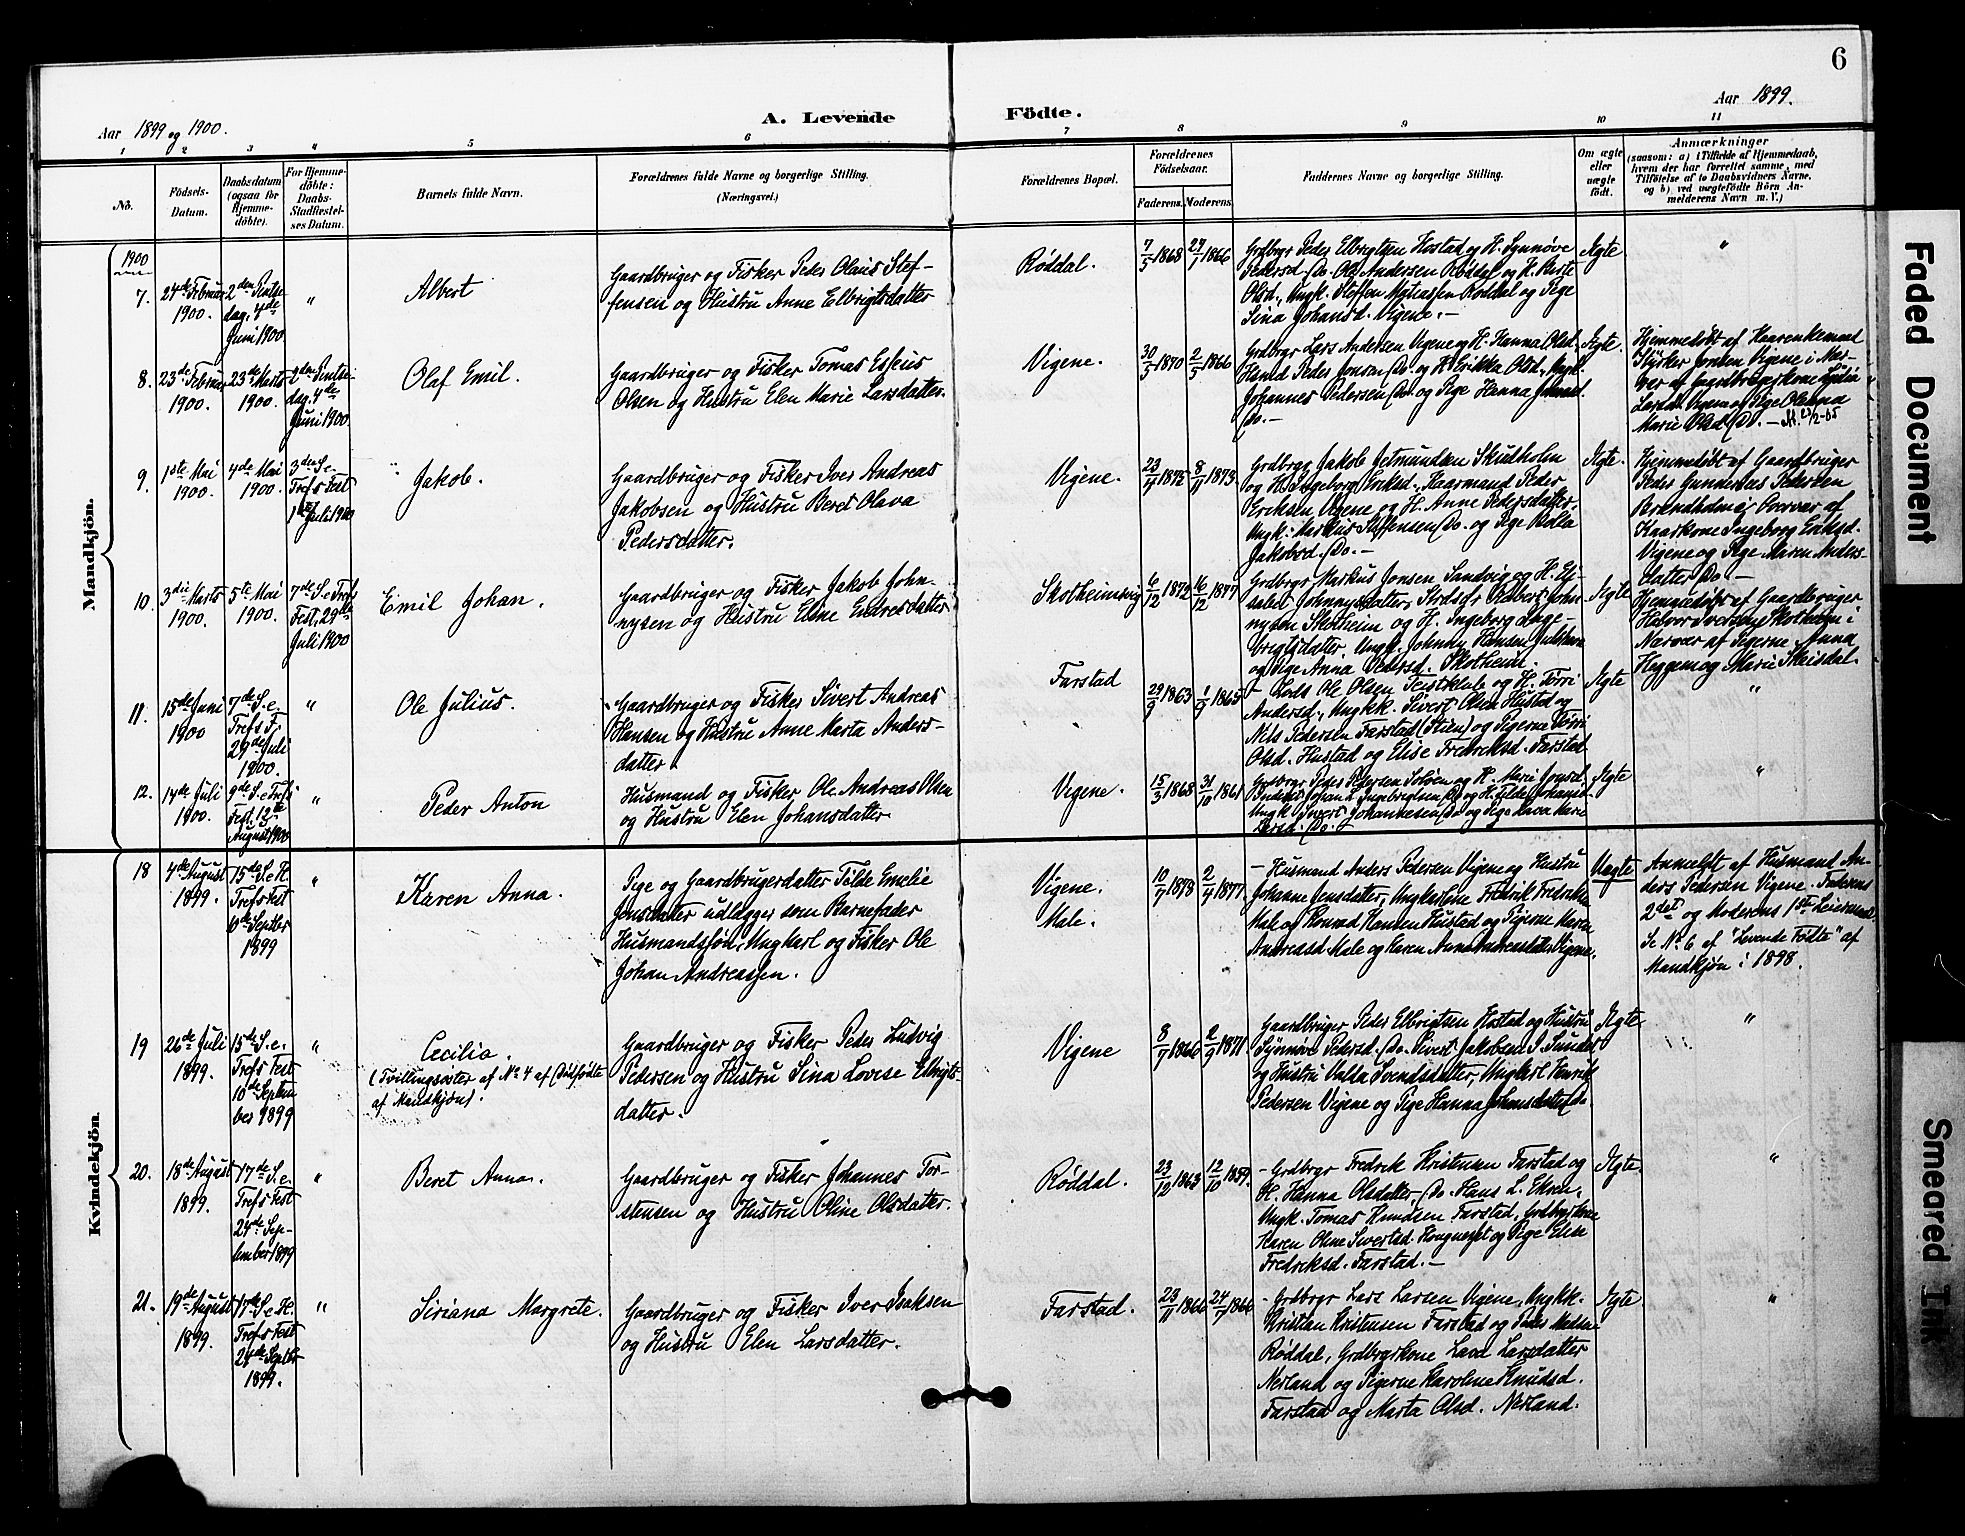 6
Aar 1899 og 1900.
A. Levende
Födte.
Aar 1899.
1 2 3 4 5 6 7 8 9 10 11
No.
Födsels-
Datum.
Daabsdatum
(ogsaa for
Hjemme-
döbte).
For Hjemme-
döbte:
Daabs-
Stadfæstel-
ses Datum.
Barnets fulde Navn.
Forældrenes fulde Navne og borgerlige Stilling.
(Næringsvei.)
Forældrenes Bopæl.
Forældrenes
Födselsaar.
Faderens.
Moderens.
Faddernes Navne og borgerlige Stilling.
Om ægte
eller
uægte
födt.
Anmærkninger
(saasom: a) i Tilfælde af Hjemmedaab,
hvem der har forrettet samme, med
Tilföielse af to Daabsvidners Navne,
og b) ved uægtefödte Börn An-
melderens Navn m. V.)
Mandkjön.
1900
7.
24de Februar
1900.
2den Pintse
dag, 4de
Juni 1900
"
Albert
Gaardbruger og Fisker Peder Olaus Stef-
fensen og Hustru Anne Elbrigtsdatter
Røddal.
7/5 1868
27/1 1866
Grdbrgr Peder Elbrigtsen Hostad og H. Synnøve
Pedersd. Do. Ole Andersen Røddal og H. Marte
Olsd., Ungk. Steffen Røddal og Pige
Sina Johansd. Vigene.-
Ægte
"
8.
23de Februar
1900.
23de Marts
1900.
2den Pintse
dag, 4de
Juni 1900
Olaf Emil.
Gaardbruger og Fisker Tomas Espeius
Olsen og Hustru Elen Marie Larsdatter.
Vigene.
30/5 1870
2/5 1866
Grdbrgr Lars Andersen Vigene og H. Hanna Olsd.
Peder Jonsen Do. og H. Erikka Olsd., Ungk.
Johannes Pedersen Do. og Pige Hanna
Do.-
Ægte.
Hjemmedøbt af
Jonsen Vigene i Nær-
vær af Gaardbrugerkone
Larsd. Vigene og Pige Olianna
Marie Olsd. Do.-
9.
1ste Mai
1900.
4de Mai
1900.
3den S. e.
Tref.s Fest
1ste Juli 1900
Jakob.
Gaardbruger og Fisker Iver Andreas
Jakobsen og Hustru Beret Olava
Pedersdatter.
Vigene.
23/4 1872
8/11 1873
Grdbrgr Jakob Jetmundsen Skudholm
og H. Ingeborg Eriksd., Kaarmand Peder
Eriksen Vigene og H. Anne Pedersdatter,
Ungk. Markus Steffensen Do. og Pige
Jakobsd. Do.-
Ægte.
Hjemmedøbt af Gaardbruger
Peder Gunnerius Pedersen
Brandholm i Overvær af
Kaarkone Ingeborg Eriksd.
Vigene og Pige Maren Anders-
datter Do.-
10.
3die Marts
1900.
5te Mai
1900.
7de S. e. Tref.s
Fest, 29de
Juli 1900
Emil Johan.
Gaardbruger og Fisker Jakob John-
nysen og Hustru Eline Endresdatter
Skotheimsvig
6/12 1872
16/12 1877
Grdbrgr Markus Jonsen Sandvig og H. El-
sabet Johnnysdatter, Grdbrgr Sivert John-
nysen Skotheim og H. Ingeborg Inge-
brigtsdatter, Ungk. Johnny Hansen
og Pige Anna Pedersd. Skotheim.
Ægte
Hjemmedøbt af Gaardbruger
Halvor Iversen Skotheim i
Nærvær af Pigerne Anna
Heggem og Marie Skeisdal.
11.
15de Juni
1900
7de S. e.
Tref.s F.
29de Juli
1900.
"
Ole Julius.
Gaardbruger og Fisker Sivert Andreas
Hansen og Hustru Anne Marta Anders-
datter.
Farstad
29/9 1863
1/9 1865
- Lods Ole Olsen Teistklub og H. Torri
Andersd., Ungkk. Sivert Olsen Hustad og
Nils Pedersen Farstad (Stien) og Pigerne Torri
Olsd. Hustad og Elise Fredriksd. Farstad
Ægte
"
12.
14de Juli
1900.
9de S. e. Tref.s
Fest, 12te
August 1900
"
Peder Anton
Husmand og Fisker Ole Andreas Olsen
og Hustru Elen Johansdatter.
Vigene.
15/3 1868
31/10 1861
Grdbrgr Peder Pedersen Soløen og H. Marie Jonsd.
Johan L. Ingebrigtsen Do. og H. Gjelde Johansd.
Ungk. Sivert Johannesen Do. og Pige Lava Marie
Larsd. Do.
Ægte
"
Kvindekjön.
18
4de August
1899.
15de S. e. H.
Tref.s Fest
10de Septbr
1899
"
Karen Anna.
Pige og Gaardbrugerdatter Tilde Emelie
Jonsdatter udlægger som Barnefader
Husmandssøn, Ungkarl og Fisker Ole
Johan Andreassen.
Vigene.
Male.
10/7 1878
2/4 1877
- Husmand Anders Pedersen Vigene og Hustru
Johanne Jensdatter, Ungkarlene Fredrik Fredriksen
Male og Konrad Hansen Hustad og Pigerne Maren
Andreasd. Male og Karen Anna Andreasdatter Vigene.
Uægte
Anmeldt af Husmand An-
ders Pedersen Vigene. Faderens
2det og Moderens 1ste Leiermaal.
Se No 6 af "Levende Fødte" af
Mandkjøn i 1898.
19
26de Juli
1899.
15de S. e.
Tref.s Fest
10de Septem
ber 1899
"
Cecilia.
(Tvillingsøster af No 4 af Dødfødte
af Mandkjøn).
Gaardbruger og Fisker Peder Ludvig
Pedersen og Hustru Sina Lovise Elbrigts-
datter.
Vigene
8/7 1866
2/9 1871
Gaardbruger Peder Elbrigtsen Hostad og Hustru
Synnøve Pedersd. Do. Sivert Jakobsen S. Sundet
og Hustru Valda Svendsdatter, Ungkarl Henrik
Pedersen Vigene og Pige Hanna Johansdatter Do.
Ægte
"
20.
18de August
1899.
17de S. e.
Tref.s Fest
24de Sep-
tember 1899
"
Beret Anna.
Gaardbruger og Fisker Johannes Tor-
stensen og Hustru Oline Olsdatter.
Røddal.
23/12 1863
12/10 1859.
- Grdbrgr Fredrik Kristensen Farstad og
H. Hanna Olsdatter, Do. Hans L. Ekren,
Ungk. Tomas Knudsen Farstad, Grdbrgrkone
Karen Oline Sivertsd. og Pige Elise
Fredriksd. Farstad.-
Ægte.
"
21.
19de August
1899.
17de S. e. H.
Tref.s Fest
24de Septbr
1899.
"
Siriana Margrete.
Gaardbruger og Fisker Iver Isaksen
og Hustru Elen Larsdatter.
Farstad.
23/11 1866
24/7 1866
- Grdbrgr Lars Larsen Vigene, Ungkk.
Kristian Kristensen Farstad og Peder
Røddal, Grdbrgrkone Lava Larsdatter
Nerland og Pigerne Karoline Knudsd.
Farstad og Marta Olsd. Nerland.
Ægte
"
Faded Document
Smeared Ink